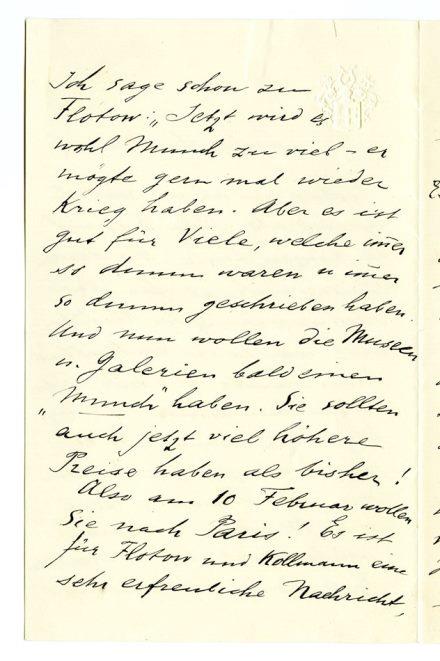 Ich sage schon zu
Flotow: „Jetzt wird es
wohl Munch zu viel – er
mögte gern mal wieder
Krieg haben. Aber es ist
gut für Viele, welche im̄er
so dumm waren u im̄er
so dumm geschrieben haben.
Und nun wollen die Museen
u. Galerien bald einen
„Munch" haben. Sie sollten
auch jetzt viel höhere
Preise haben als bisher!
Also am 10 Februar wollen
Sie nach Paris! Es ist
für Flotow und Kollmann eine
sehr erfreuliche Nachricht,